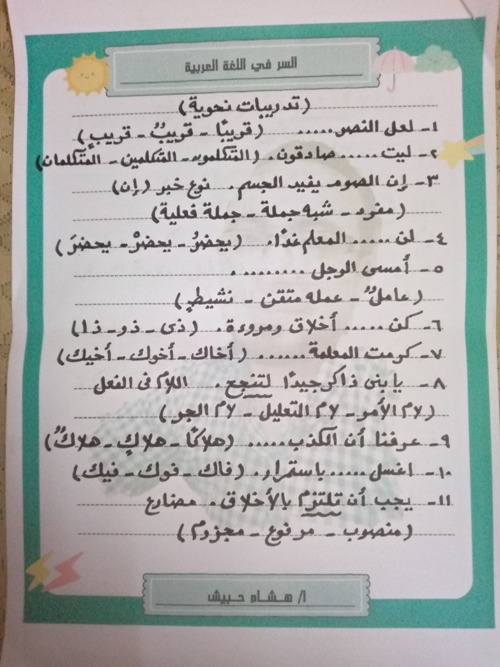 السر في اللغة العربية
(تدريبات نحوية)
١- لعل النصر..... (قريبًا - قريبٌ - قريبٍ)
٢- ليت ..... صادقون. (المتكلمون - المتكلمين - المتكلمان)
٣- إن الصوم يفيد الجسم. نوع خبر (إن)
(مفرد - شبه جملة - جملة فعلية)
٤- لن ..... المعلم غدًا. (يحضرُ - يحضرْ - يحضرَ)
٥- أمسى الرجل .........
(عاملٌ - عمله متقن - نشيطٍ)
٦- كن ..... أخلاق ومروءة. (ذى - ذو - ذا)
٧- كرمت المعلمة ...... (أخاك - أخوك - أخيك)
٨- يا بنى ذاكر جيدًا لتنجح. اللام فى الفعل
(لام الأمر - لام التعليل - لام الجر)
٩- عرفنا أن الكذب..... (هلاكًا - هلاكٍ - هلاكٌ)
١٠- اغسل ..... باستمرار. (فاك - فوك - فيك)
١١- يجب أن تلتزم بالأخلاق. مضارع
(منصوب - مرفوع - مجزوم)
أ/ هشام حبيش